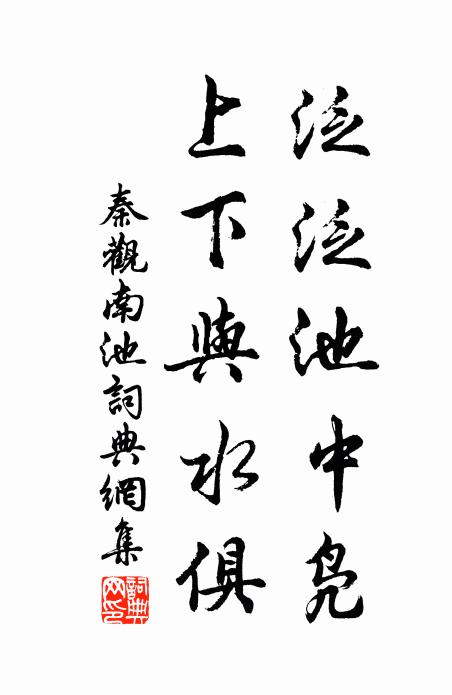 泛泛池中凫
上下與水俱
秦觀南池詞典網集
詞典网印